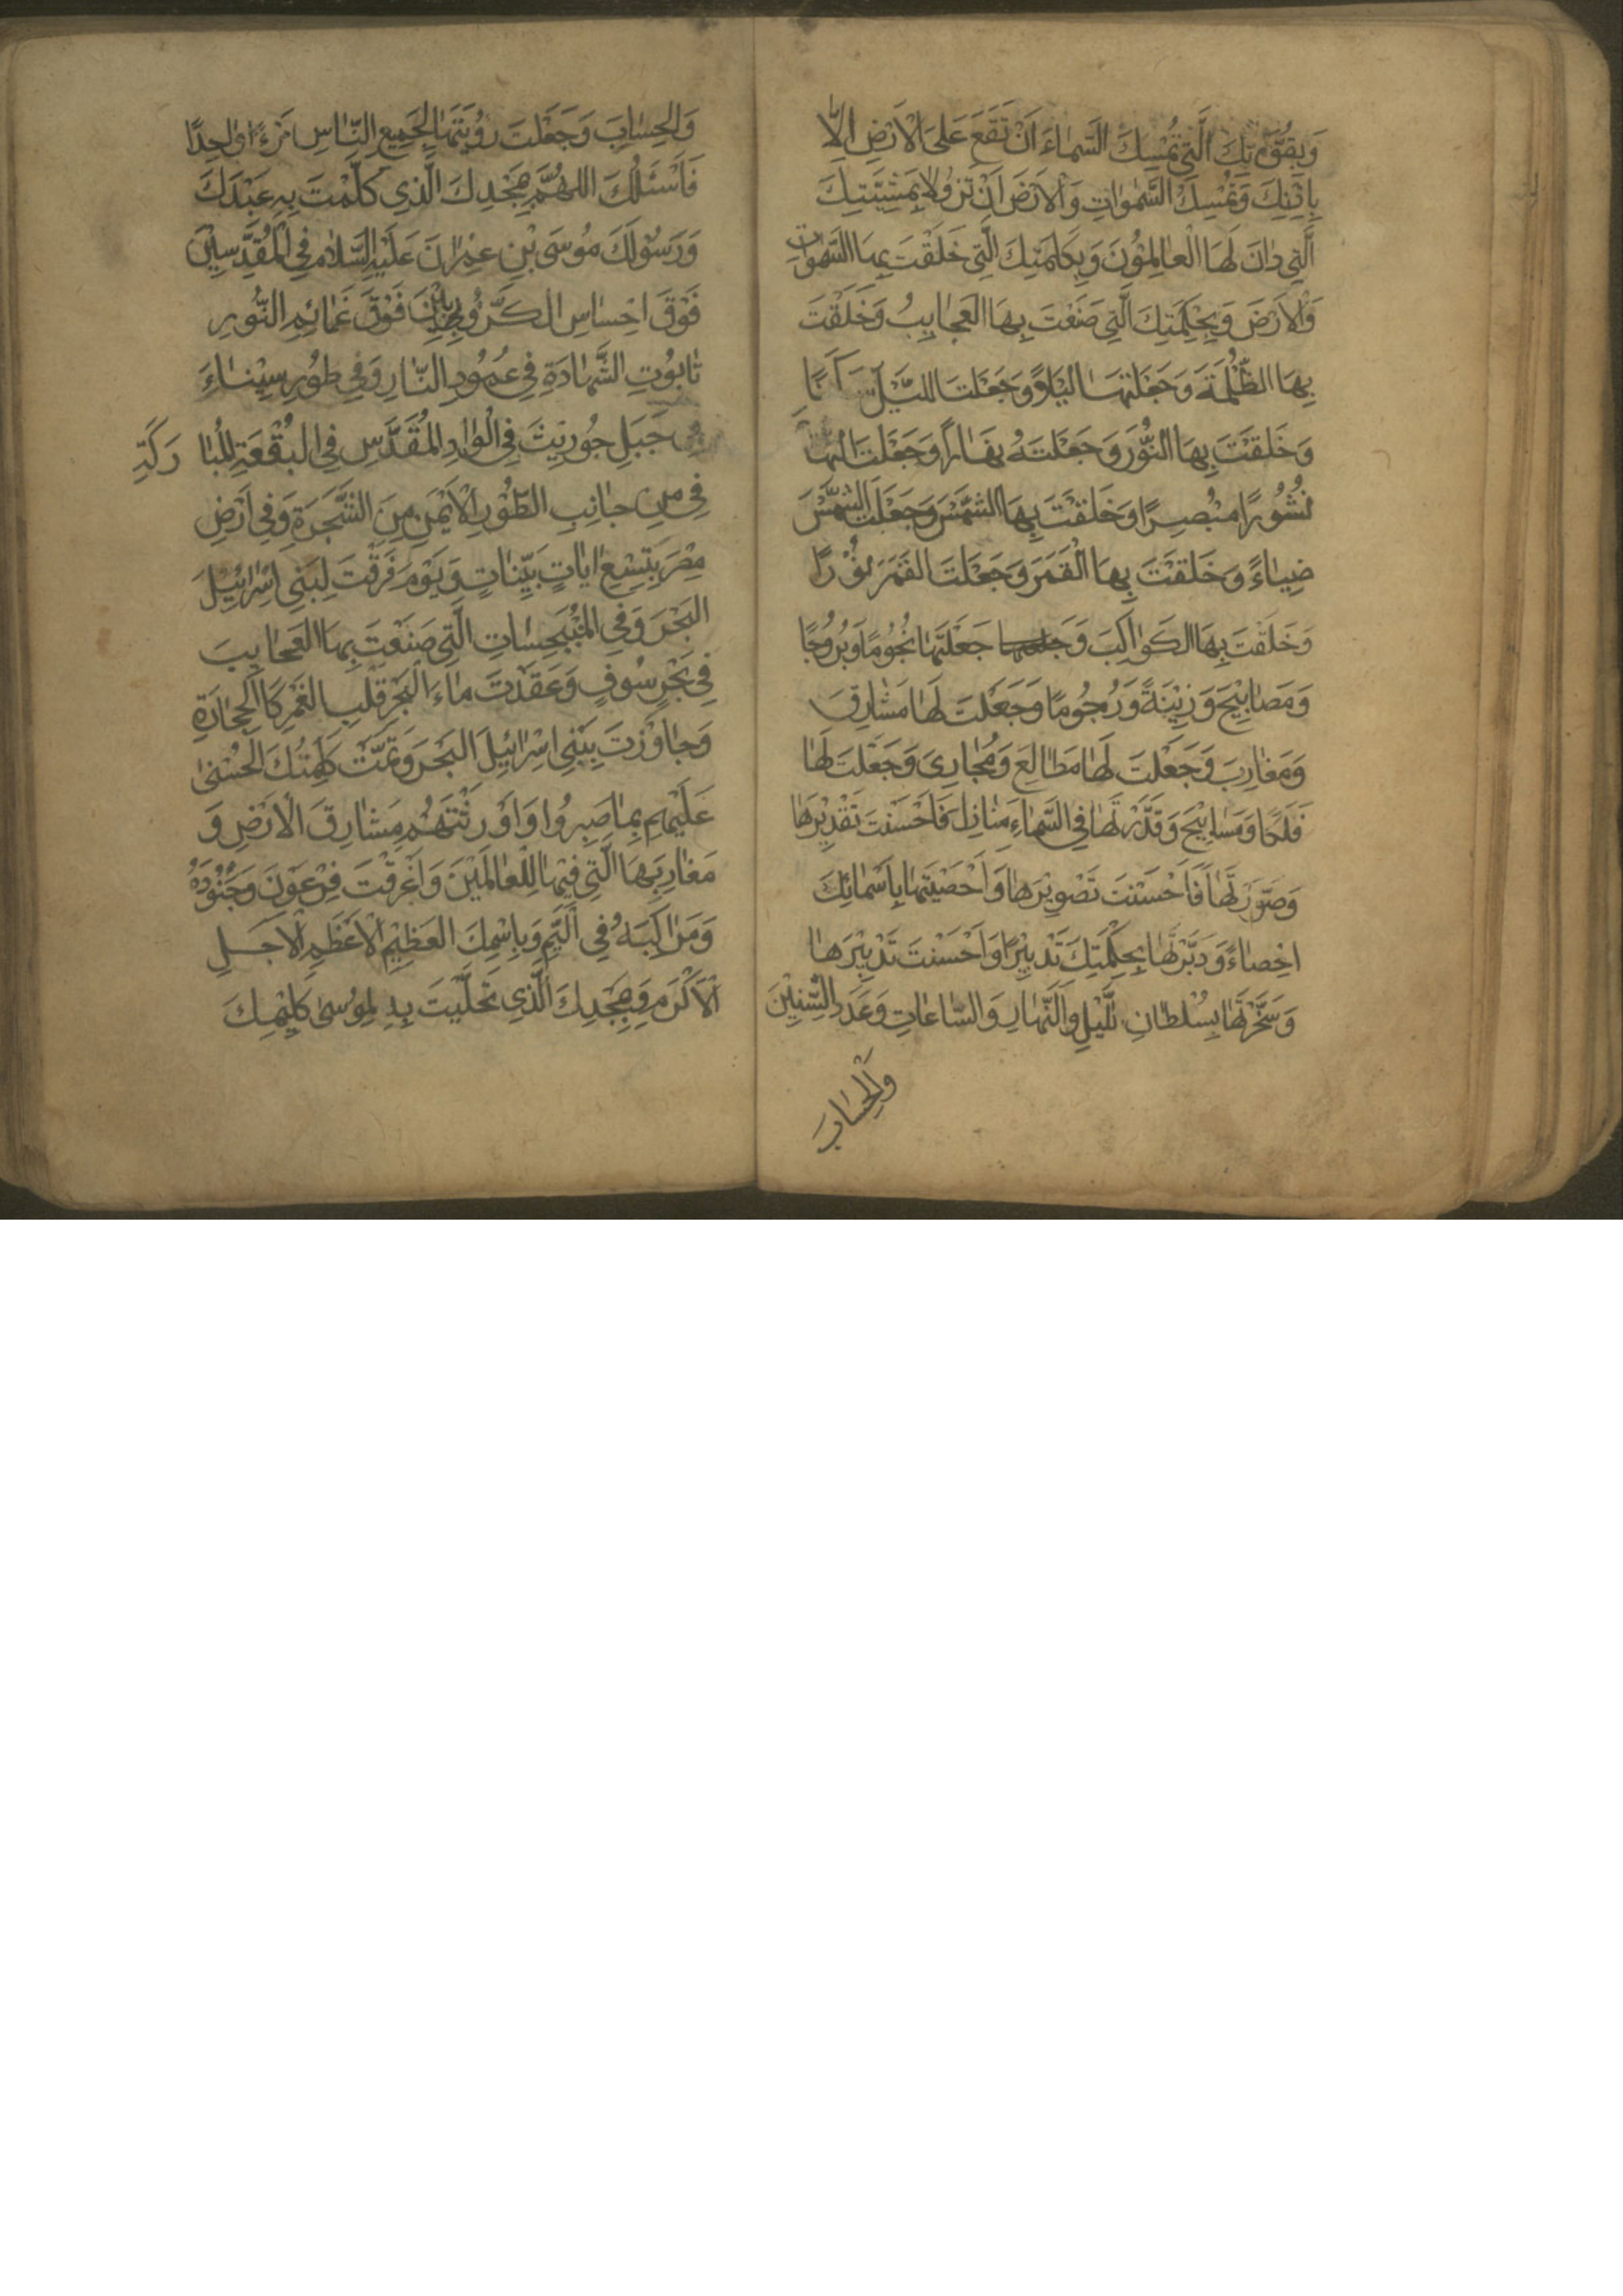 وَبِقُوَّتِكَ الَّتِي تُمْسِكُ السَّمَاءَ اَنْ تَقَعَ عَلَى الْاَرْضِ اِلَّا
بِاِذْنِكَ وَتُمْسِكُ السَّمٰوَاتِ وَالْاَرْضَ اَنْ تَزُولَا بِمَشِيَّتِكَ
الَّتِي دَانَ لَهَا الْعَالِمُونَ وَبِكَلِمَتِكَ الَّتِي خَلَقْتَ بِهَا السَّمٰوَاتِ
وَالْاَرْضَ وَبِحِكْمَتِكَ الَّتِي صَنَعْتَ بِهَا الْعَجَايِبُ وَخَلَقْتَ
بِهَا الظُّلْمَةَ وَجَعَلْتَهَا لَيْلًا وَجَعَلْتَ اللَّيْلَ
وَخَلَقْتَ بِهَا النُّورَ وَجَعَلْتَهُ نَهَارًا وَجَعَلْتَ النَّهَا
نُشُورًا مُبْصِرًا وَخَلَقْتَ بِهَا الشَّمْسَ وَجَعَلْتَ الشَّمْسَ
ضِيَاءً وَخَلَقْتَ بِهَا الْقَمَرَ وَجَعَلْتَ الْقَمَرَ نُوْرًا
وَخَلَقْتَ بِهَا الْكَوَاكِبَ وَ جَعَلْتَهَا نُجُومًا وَبُرُوجًا
وَمَصَابِيْحَ وَزِيْنَةً وَرُجُومًا وَجَعَلْتَ لَهَا مَشَارِقَ
وَمَغَارِبَ وَجَعَلْتَ لَهَا مَطَالِعَ وَمَجَارِىَ وَجَعَلْتَ لَهَا
فَلَكًا وَمَسَابِيْحَ وَقَدَّرْتَهَا فِي السَّمَاءِ مَنَازِلَ فَاَحْسَنْتَ تَقْدِيْرَهَا
وَصَوَّرْتَهَا فَاَحْسَنْتَ تَصْوِيْرَهَا وَاَحْصَيْتَهَا بِاَسْمَائِكَ
اِحْصَاءً وَدَبَّرْتَهَا بِحِكْمَتِكَ تَدْبِيْرًا وَاَحْسَنْتَ تَدْبِيْرَهَا
وَسَخَّرْتَهَا بِسُلْطَانِ اللَّيْلِ وَالنَّهَارِ وَالسَّاعَاتِ وَعَدَدِ السِّنِيْنَ
وَالْحِسَابَ
وَالْحِسَابَ وَجَعَلْتَ رُؤْيَتَهَا لِجَمِيعِ النَّاسِ مَرْءًا وَاحِدًا
فَاَسْئَلُكَ اللّٰهُمَّ بِمَجْدِكَ الَّذِي كَلَّمْتَ بِهِ عَبْدَكَ
وَرَسُوْلَكَ مُوسَى بْنِ عِمْرَانَ عَلَيْهِ السَّلَامُ فِي الْمُقَدَّسِيْنَ
فَوْقَ اِحْسَاسِ الْكَرُّوبِيِّيْنَ فَوْقَ غَمَائِمِ النُّورِ
تَابُوتِ الشَّهَادَةِ فِي عَمُودِ النَّارِ وَفِي طُورِ سِيْنَاءَ
جَبَلِ حُورِيْثَ فِي الْوَادِ الْمُقَدَّسِ فِي الْبُقْعَةِ الْمُبَا رَكَةِ
فِي مِنْ جَانِبِ الطُّوْرِ الْاَيْمَنِ مِنَ الشَّجَرَةِ وَفِي اَرْضِ
مِصْرَ بِتِسْعِ اٰيَاتٍ بَيِّنَاتٍ وَيَوْمَ فَرَقْتَ لِبَنِي اِسْرَائِيْلَ
الْبَحْرَ وَفِي الْمُنْبَجِسَاتِ الَّتِي صَنَعْتَ بِهَا الْعَجَايِبَ
فِي بَحْرِ سُوفٍ وَعَقَدْتَ مَاءَ الْبَحْرِ قَلْبِ الْغَمْرِ كَالْحِجَارَةِ
وَجَاوَزْتَ بِبَنِي اِسْرَائِيْلَ الْبَحْرَ وَتَمَّتْ كَلِمَتُكَ الْحُسْنٰى
عَلَيْهِمْ بِمَا صَبَرُوا وَاَوْرَثْتَهُمْ مَشَارِقَ الْاَرْضِ وَ
مَغَارِبَهَا الَّتِي فِيْهَا لِلْعَالَمِيْنَ وَاَغْرَقْتَ فِرْعَوْنَ وَجُنُوْدَهُ
وَمَرَاكِبَهُ فِي الْيَمِّ وَبِاسْمِكَ الْعَظِيْمِ الْاَعْظَمِ الْاَجَلِّ
الْاَكْرَمِ وَبِمَجْدِكَ الَّذِي تَجَلَّيْتَ بِهِ لِمُوسٰى كَلِيْمِكَ